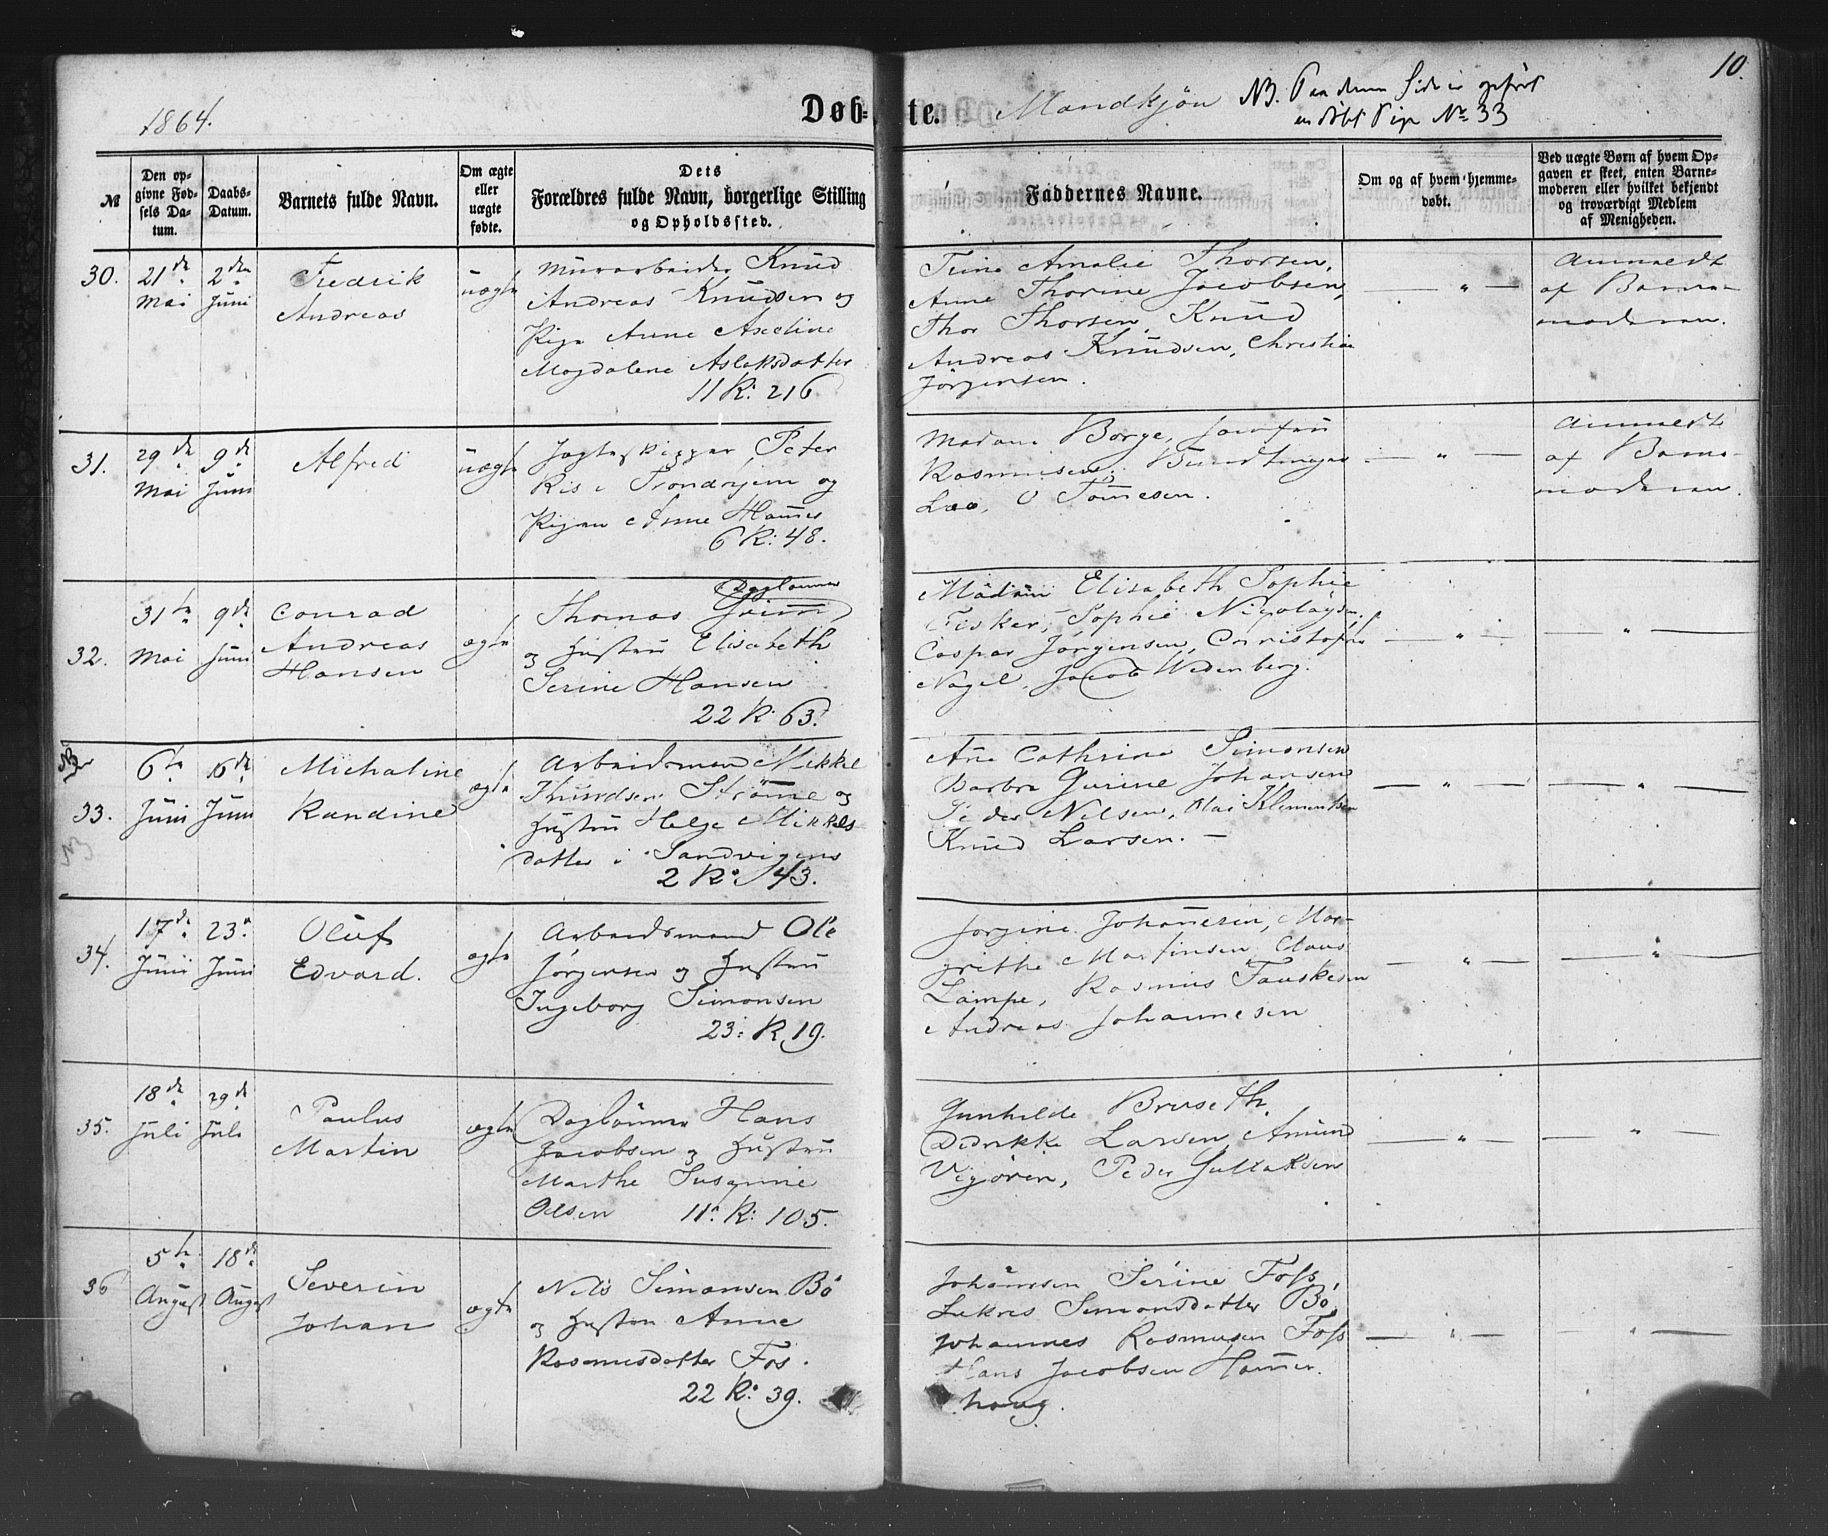 10.
1864.
Døb-te. Mandkjøn NB. Paa denne Side er opført
en døbt Pige No 33
№
Den op-
givne Fød-
sels Da-
tum.
Daabs-
Datum.
Barnets fulde Navn.
Om ægte
eller
uægte
fødte.
Dets
Forældres fulde Navn, borgerlige Stilling
og Opholdssted.
Faddernes Navne.
Om og af hvem hjemme-
døbt.
Ved uægte Børn af hvem Op-
gaven er skeet, enten Barne-
moderen eller hvilket bekjendt
og troværdigt Medlem
af Menigheden.
30.
21de
Mai
2den
Juni
Fredrik
Andreas
uægte
Murarbeider Knud
Andreas Knudsen og
Pige Anne Axeline
Magdalene Aslaksdatter
11 K: 216
Trine Amalie Thorsen,
Anne Thorine Jacobsen,
Thor Thorsen, Knud
Andreas Knudsen, Christian
Jørgensen.
— " —
Anmeldt
af Barne-
moderen.
31.
29de
Mai
9de
Juni
Alfred
uægte
Jagteskipper Peter
Ris i Trondhjem og
Pigen Anne Hannes
6 K: 48.
Madam Borge, Jomfru
Rasmusen,
Lao, O Tønnesen.
— " —
Anmeldt
af Barne-
moderen.
32.
31te
Mai
9de
Juni
Conrad
Andreas
Hansen
ægte
Daglønner
Thomas
og Hustru Elisabeth
Serine Hansen
22 K: 63.
Madam Elisabeth Sophie
Fisker, Sophie Nicolaysen,
Caspar Jørgensen, Christofer
Nagel, Jacob Wedenberg.
— " —
— " —
NB
33.
NB
6te
Juni
16de
Juni
Michaline
Randine
ægte
Arbeidsmand Mikkel
Knudsen Strømme og
Hustru Helge Mikkels
datter i Sandvigens
2 K: 143.
Ane Cathrine Simonsen
Barbra Gurine Johansen
Peder Nilsen, Olai Klementsen
Knud Larsen. —
— " —
— " —
34.
17de
Juni
23.
Juni
Oluf
Edvard.
ægte
Arbeidsmand Ole
Jørgensen og Hustru
Ingeborg Simonsen
23: K. 19.
Jorgine Johannesen, Mar-
grithe Martinsen, Claus
Lampe, Rasmus Fauskesen
Andreas Johannesen
— " —
— " —
35.
18de
Juli
29de
Juli
Paulus
Martin
ægte
Daglønner Hans
Jacobsen og Hustru
Marthe Susanne
Olsen 11: K: 105.
Gunhilde Bruseth.
Didrikke Larsen, Amund
Vigøren, Peder Gullaksen
— " —
— " —
36
5te
August
18de
August
Severin
Johan
ægte
Nils Simonsen Bø
og Hustru Anne
Rasmusdatter Fos.
22 K: 39.
Johannsen Serine Foss,
Simonsdatter Bø,
Johannes Rasmusen Foss
Hans Jacobsen Hammer
houg.
— " —
— " —